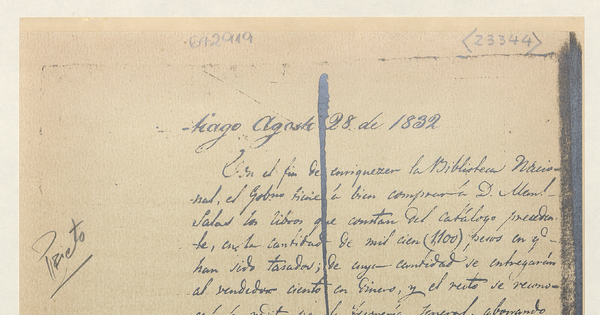 642919
(23344)
-tiago Agosto 28 de 1832
Con el fin de enriquezer la Biblioteca Nacio-
nal, el Gobno tiene à bien comprar à D. Manl.
Salas los libros que constan del catálogo preceden-
te, en la cantidad de mil cien (1,100) pesos en qe.
han sido tasados; de cuya cantidad se entregarán
al vendedor ciento en dinero, y el resto se recono-
Prieto
Tesorería General, abonando